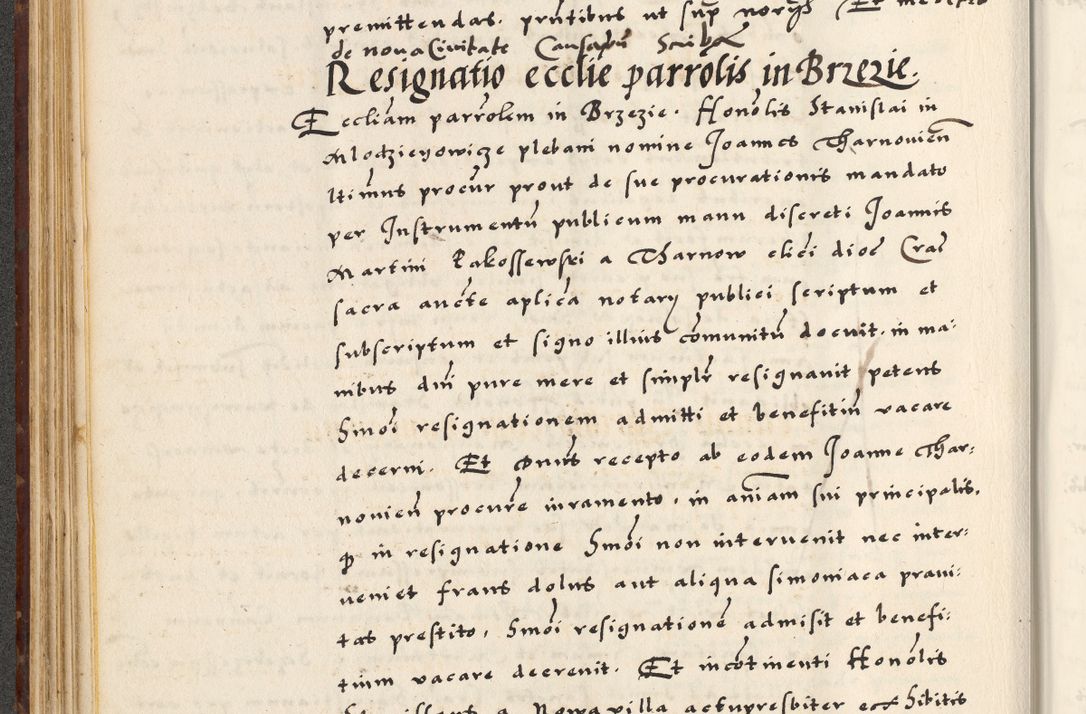 premittendas. prñtibus ut sup̃ norijs Et
de nova Civitate Causarũ Scriba
Resignatio ecclie parrolis in Brzezie.
Eccliam parrolem in Brzezie. Honolis Stanislai in
Mlodzieyowicze plebani nomine Joannes Tharnovieñ
ltimus procur prout de sue procurationis mandato
per Instrumentũ publicum manu discreti Joannis
Martini Rakossewski a Tharnow clici dioc Crac
sacra aucte aplica notary publici scriptum et
subscriptum et signo illius comunitũ docuit. in ma:
nibus dñi pure mere et simplr resignavit petens
Smoi resignationem admitti et benefitiũ vacare
decerni. Et Dnus recepto ab eodem Joanne Thar:
novieñ procure iuramento. in aniam sui principalis.
qp in resignatione Smoi non intervenit nec inter:
veniet fraus dolus aut aliqua simoniaca pravi:
tas prestito. Smoi resignationẽ admisit et benefi:
tium vacare decrevit. Et incotinenti Honolis
a Nowavilla actupresbiter